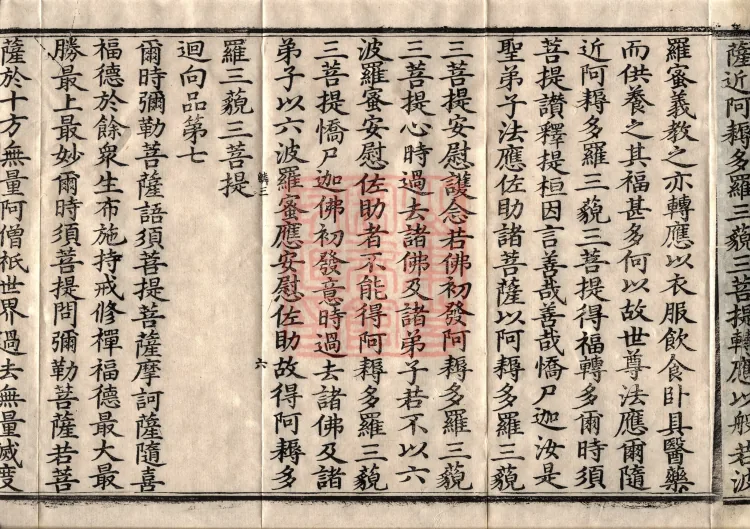 薩近阿耨多羅三藐三菩提轉應以般若波
羅蜜義教之亦轉應以衣服飲食臥具醫藥
而供養之其福甚多何以故世尊法應爾隨
近阿耨多羅三藐三菩提得福轉多爾時須
菩提讃釋提桓因言善哉善哉憍尸迦汝是
聖弟子法應佐助諸菩薩以阿耨多羅三藐
三菩提安慰護念若佛初發阿耨多羅三藐
三菩提心時過去諸佛及諸弟子若不以六
波羅蜜安慰佐助者不能得阿耨多羅三藐
三菩提憍尸迦佛初發意時過去諸佛及諸
弟子以六波羅蜜應安慰佐助故得阿耨多
六
羅三藐三菩提
迴向品第七
爾時彌勒菩薩語須菩提菩薩摩訶薩隨喜
福德於餘衆生布施持戒修禪福德最大最
勝最上最妙爾時須菩提問彌勒菩薩若菩
薩於十方無量阿僧祇世界過去無量滅度